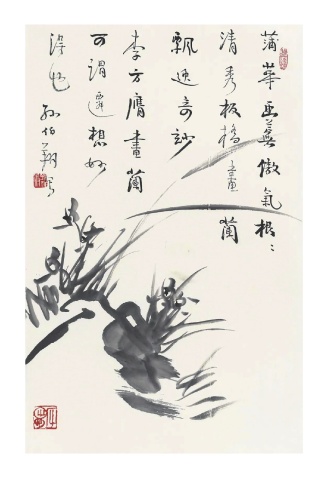 蒲華巨蕉傲氣根〻
清秀板橋畫蘭
飄逸奇妙
李方膺畫蘭
可謂遐想妙
得趣
孙伯翔